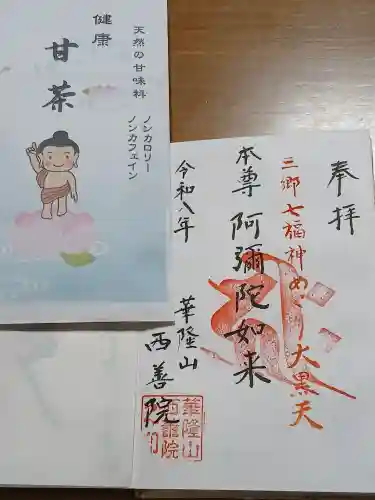 天然の甘味料
健康
甘茶
ノンカロリー
ノンカフェイン
奉拝
三郷七福神めぐり大黒天
本尊 阿彌陀如来
令和八年
華隆山
西善院
華隆山
西善院